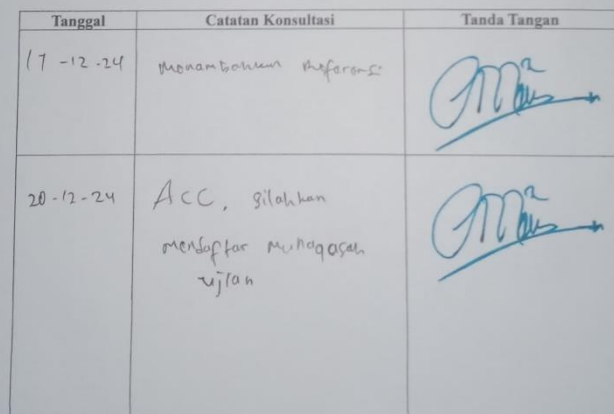 Tanggal Catatan Konsultasi Tanda Tangan
17-12-24 Menambahkan Referensi
20-12-24 ACC, silahkan
mendaftar munaqasah
ujian